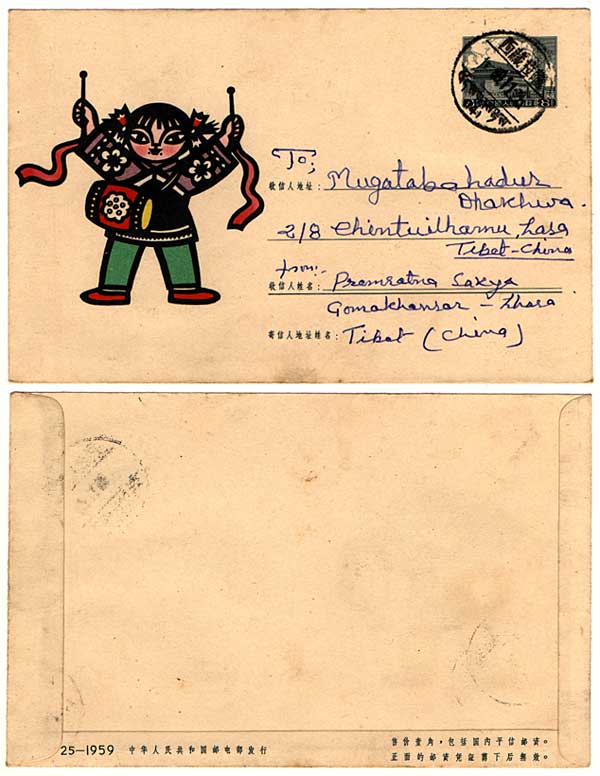 To;
收信人地址：Mugatabahadur
Dhakhwa.
2/8 Chentuilhamu, Lasa
Tibet-China
from:-
收信人姓名：Premratna Sakya
Gomakhansar - Lhasa
寄信人地址姓名：Tibet (China)
25—1959 中华人民共和国邮电部发行
售价壹角，包括国内平信邮资。
正面的邮资凭证剪下后无效。